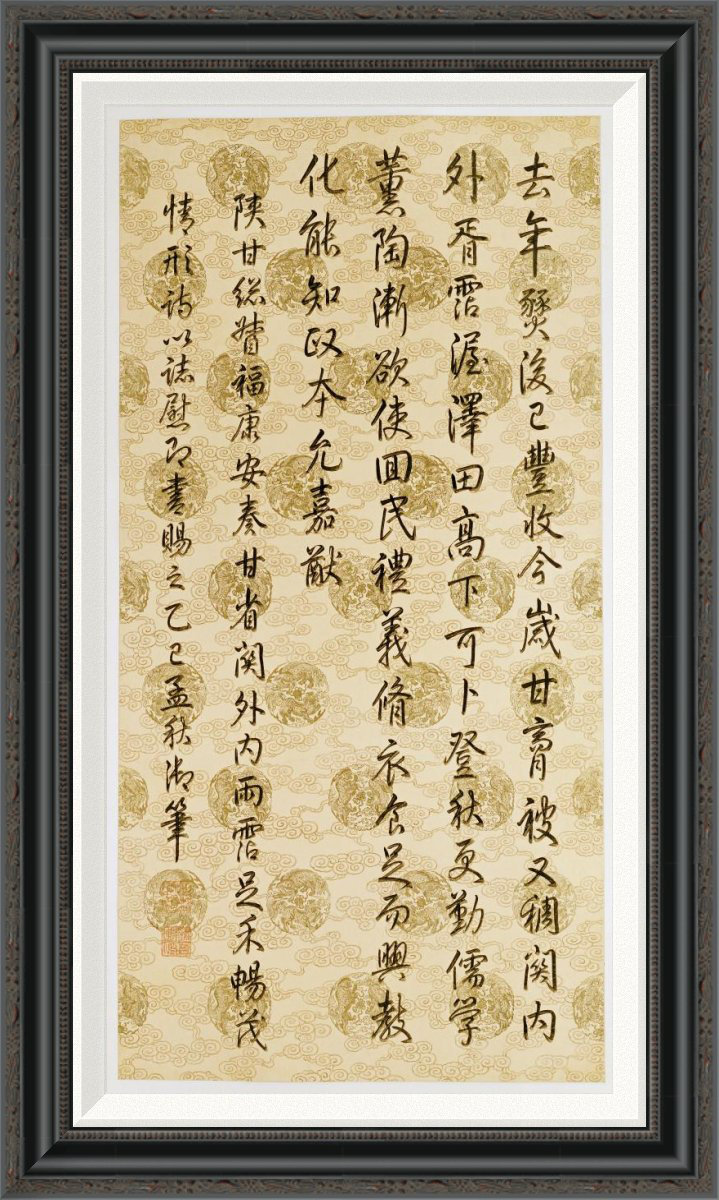 去年燹後已豐收今歲甘膏被又稠関内
外胥霑渥澤田髙下可卜登秋更勤儒学
薰陶漸欲使回民禮義脩衣食足而興教
化能知政本允嘉猷
陝甘総督福康安奏甘省関外内雨霑足禾暢茂
情形詩以誌慰即書賜之乙巳孟秋御筆